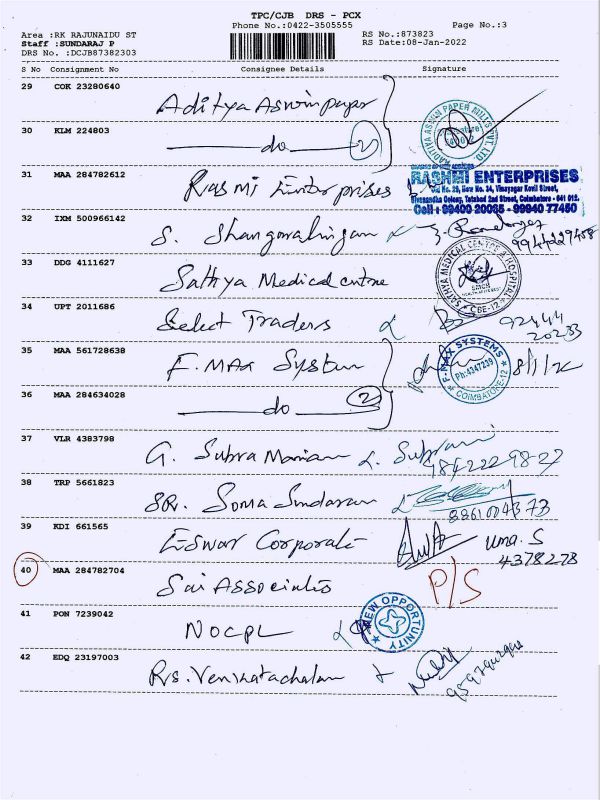 TPC/CJB DRS - PCX
Phone No.:0422-3505555
Page No.:3
Area :RK RAJUNAIDU ST
RS No.:873823
Staff :SUNDARAJ P
RS Date:08-Jan-2022
DRS No. :DCJB87382303
S No Consignment No Consignee Details Signature
29 COK 23280640
Aditya Aswin paper
30 KLM 224803
do 2
31 MAA 284782612
Rasmi Enterprises
RASHMI ENTERPRISES
Old No. 29, New No. 34, Vinayagar Kovil Street,
Sivanandha Colony, Tatabad 2nd Street, Coimbatore - 641 012.
Cell : 99400 20065 - 99940 77450
32 IXM 500966142
S. Shangaralingam
33 DDG 4111627
Sathya Medical centre
SATHYA MEDICAL CENTRE & HOSPITAL
CBE-12
34 UPT 2011686
Select Traders
92444
20233
35 MAA 561728638
F. MAX System
F-MAX SYSTEMS
Ph:4347239
COIMBATORE-12
8/1/22
36 MAA 284634028
do 2
37 VLR 4383798
G. Subra Maniam
984222-98-27
38 TRP 5661823
SR. Soma Sundaram
39 KDI 661565
Eswar Corporate
Uma. S
4378278
40 MAA 284782704
Sai Associates
P/S
41 PON 7239042
NOCPL
NEW OPPORTUNITY
42 EDQ 23197003
Rs. Venkatachalam